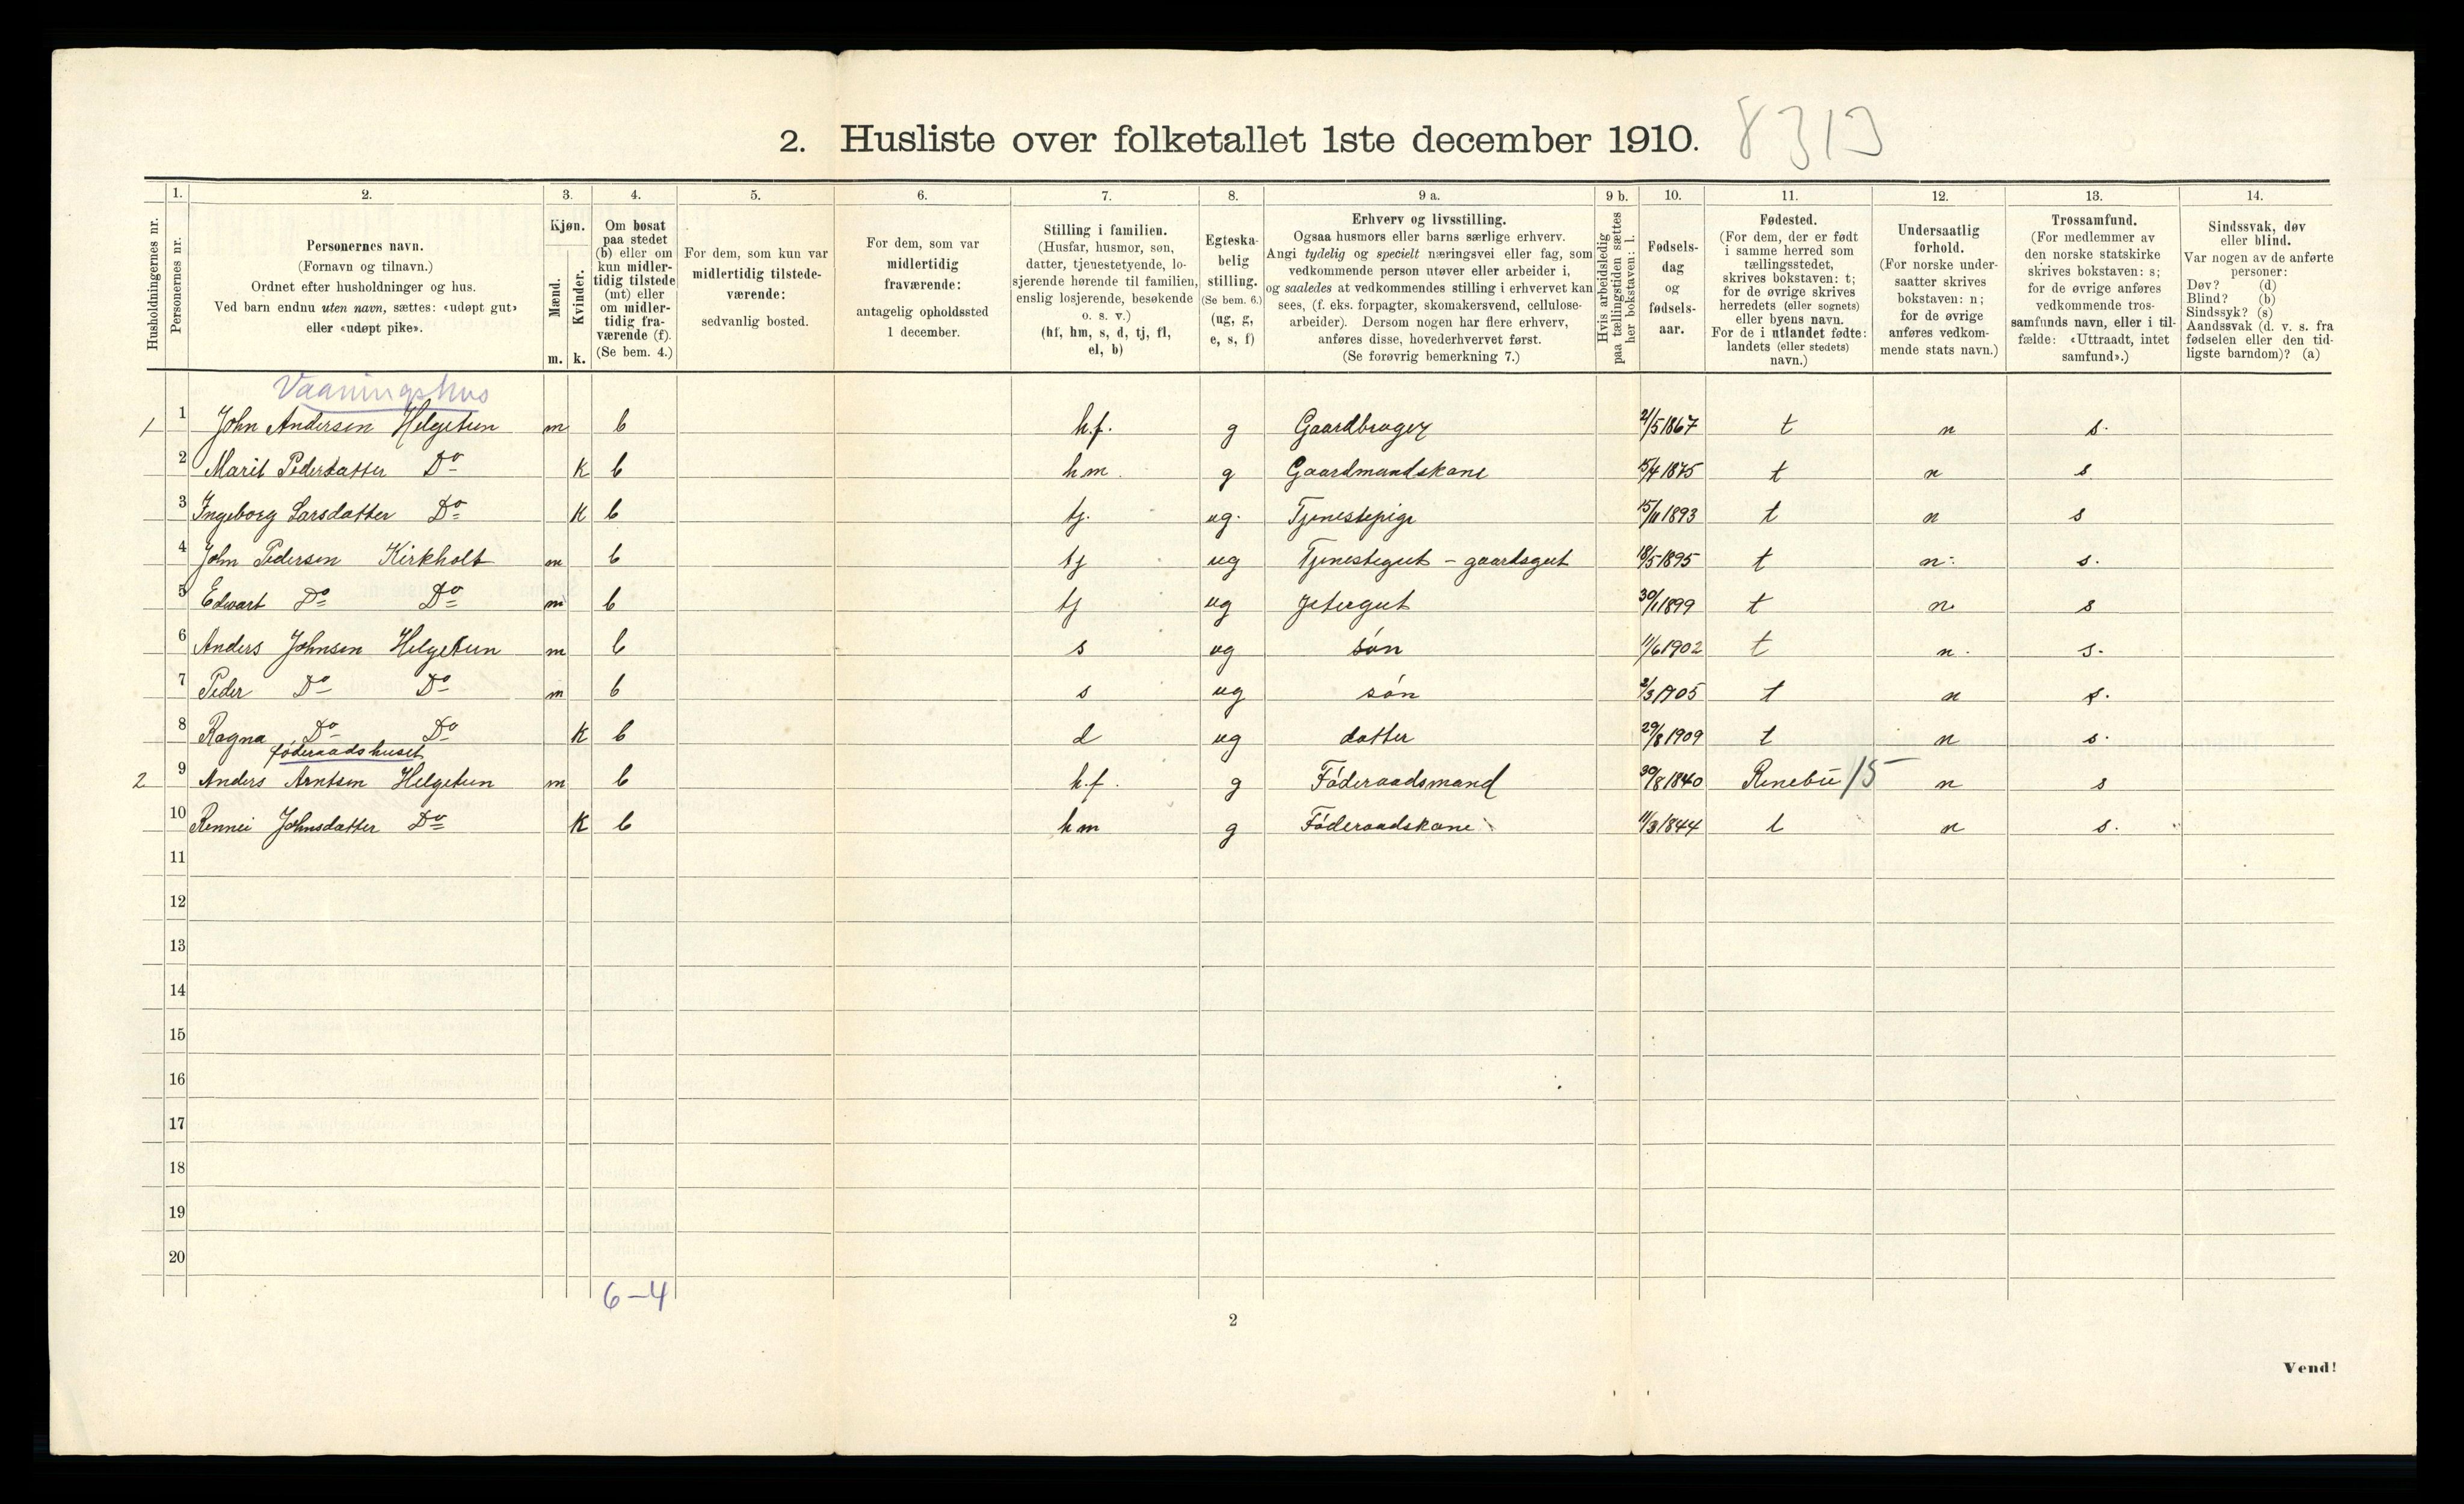 2. Husliste over folketallet 1ste december 1910. 8313
Husholdningernes nr.
1. Personernes nr.
2. Personernes navn. (Fornavn og tilnavn.) Ordnet efter husholdninger og hus. Ved barn endnu uten navn, sættes: «udøpt gut» eller «udøpt pike».
3. Kjøn. Mænd. m. Kvinder. k.
4. Om bosat paa stedet (b) eller om kun midlertidig tilstede (mt) eller om midlertidig fraværende (f). (Se bem. 4.)
5. For dem, som kun var midlertidig tilstedeværende: sedvanlig bosted.
6. For dem, som var midlertidig fraværende: antagelig opholdssted 1 december.
7. Stilling i familien. (Husfar, husmor, søn, datter, tjenestetyende, losjerende hørende til familien, enslig losjerende, besøkende o. s. v.) (hf, hm, s, d, tj, fl, el, b)
8. Egteskabelig stilling. (Se bem. 6.) (ug, g, e, s, f)
9 a. Erhverv og livsstilling. Ogsaa husmors eller barns særlige erhverv. Angi tydelig og specielt næringsvei eller fag, som vedkommende person utøver eller arbeider i, og saaledes at vedkommendes stilling i erhvervet kan sees, (f. eks. forpagter, skomakersvend, cellulosearbeider). Dersom nogen har flere erhverv, anføres disse, hovederhvervet først. (Se forøvrig bemerkning 7.)
9 b. Hvis arbeidsledig paa tællingstiden sættes her bokstaven: l.
10. Fødselsdag og fødselsaar.
11. Fødested. (For dem, der er født i samme herred som tællingsstedet, skrives bokstaven: t; for de øvrige skrives herredets (eller sognets) eller byens navn. For de i utlandet fødte: landets (eller stedets) navn.)
12. Undersaatlig forhold. (For norske undersaatter skrives bokstaven: n; for de øvrige anføres vedkommende stats navn.)
13. Trossamfund. (For medlemmer av den norske statskirke skrives bokstaven: s; for de øvrige anføres vedkommende trossamfunds navn, eller i tilfælde: «Uttraadt, intet samfund».)
14. Sindssvak, døv eller blind. Var nogen av de anførte personer: Døv? (d) Blind? (b) Sindssyk? (s) Aandssvak (d. v. s. fra fødselen eller den tidligste barndom)? (a)
Vaaningshus
1 1 John Andersen Helgetun m b h.f. g Gaardbruger 2/5 1867 t n s.
2 Marit Pedersdatter Do k b hm. g Gaardmandskone 15/4 1875 t n s
3 Ingeborg Larsdatter Do k b tj. ug. Tjenestepige 15/11 1893 t n s
4 John Pedersen Kirkholt m b tj ug Tjenestegut - gaardsgut 18/5 1895 t n. s.
5 Edvart Do Do m b tj ug Jetergut 30/1 1899 t n. s
6 Anders Johnsen Helgetun m b s ug søn 11/6 1902 t n. s.
7 Peder Do Do m b s ug søn 2/3 1905 t n s.
8 Ragna Do Do k b d ug datter 29/8 1909 t n s.
føderaadshuset
2 9 Anders Arntsen Helgetun m b h.f. g Føderaadsmand 30/8 1840 Renebu 15 n s
10 Rennei Johnsdatter Do k b hm g Føderaadskone 11/3 1844 t n s.
11
12
13
14
15
16
17
18
19
20
6-4
2
Vend!